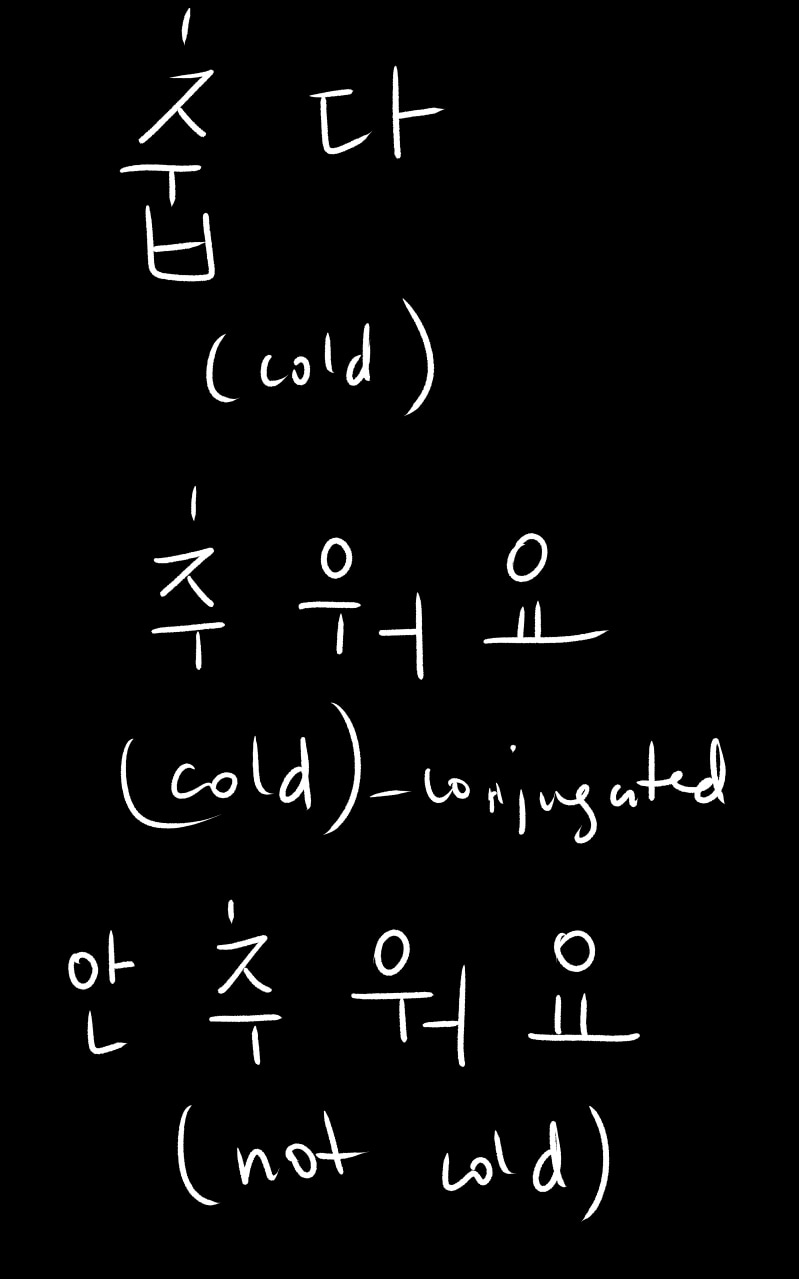 춥다
(cold)
추워요
(cold) - conjugated
안 추워요
(not cold)